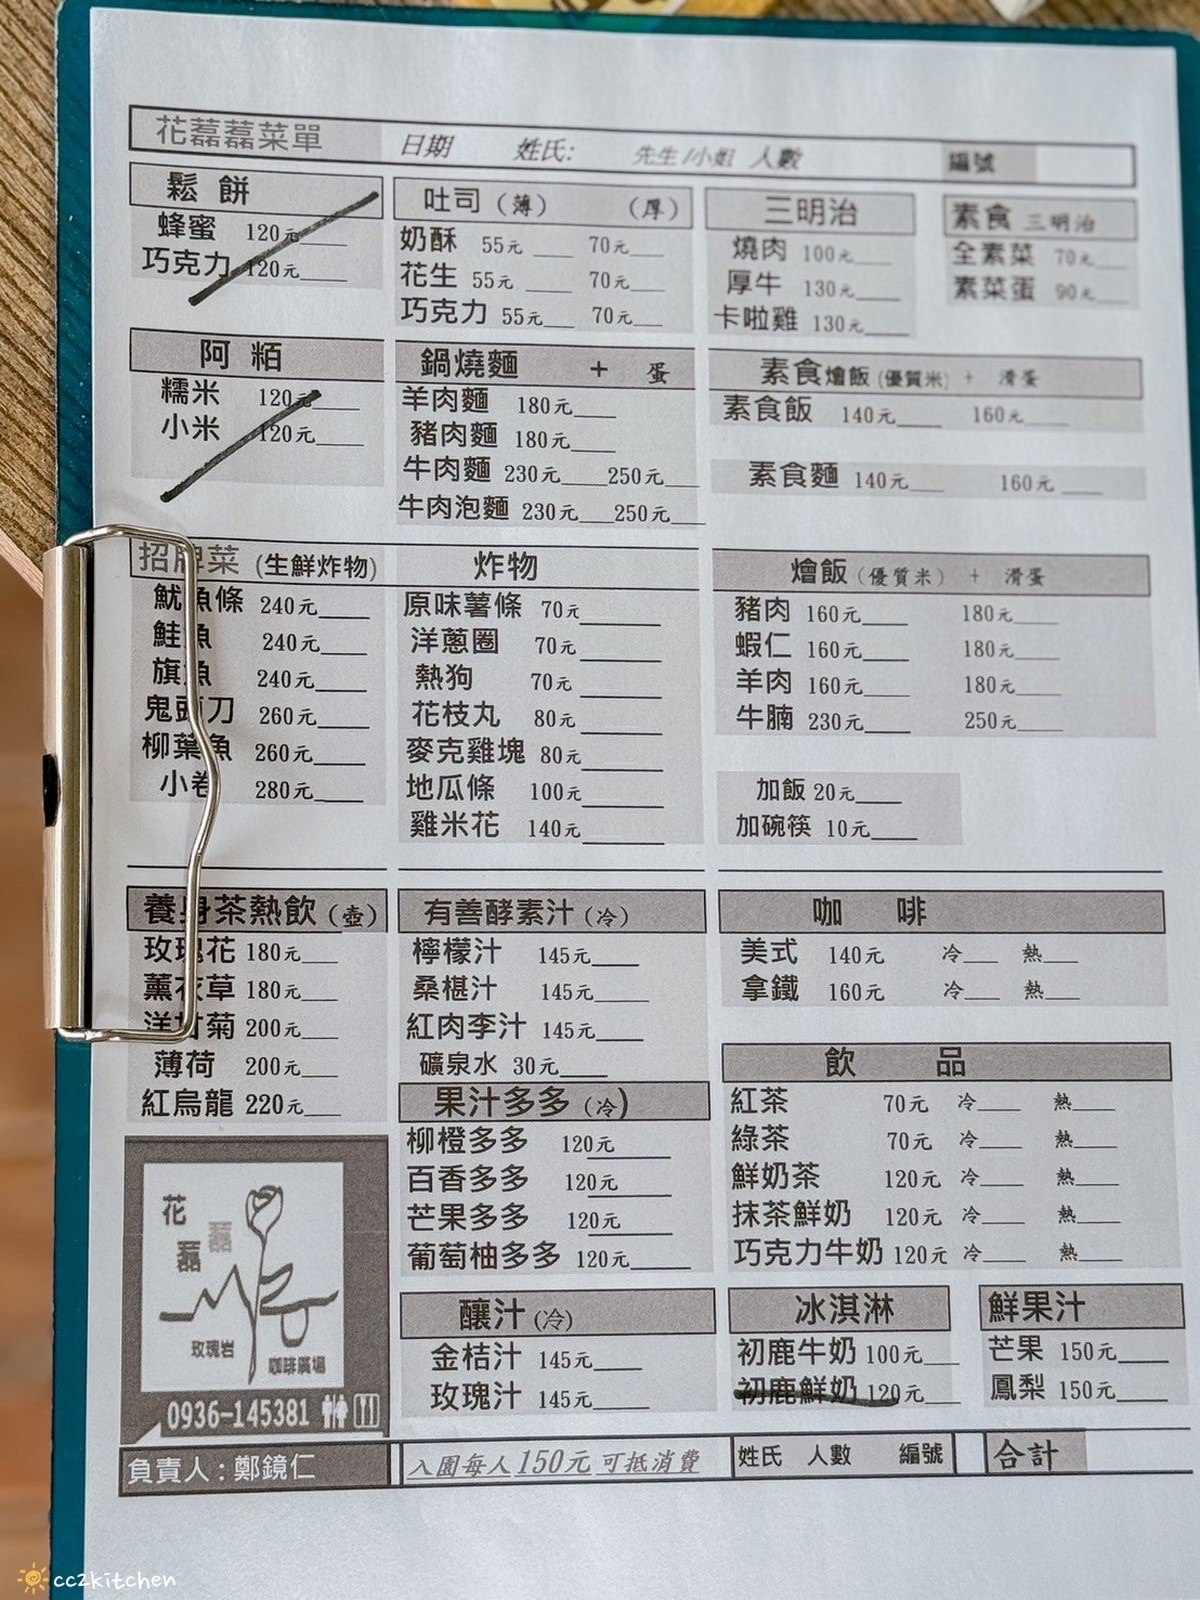 花藞藞菜單 日期 姓氏: 先生/小姐 人數 編號
鬆餅
蜂蜜 120元____
巧克力 120元____
吐司（薄） （厚）
奶酥 55元____ 70元____
花生 55元____ 70元____
巧克力 55元____ 70元____
三明治
燒肉 100元____
厚牛 130元____
卡啦雞 130元____
素食 三明治
全素菜 70元____
素菜蛋 90元____
阿粨
糯米 120元____
小米 120元____
鍋燒麵 + 蛋
羊肉麵 180元____
豬肉麵 180元____
牛肉麵 230元____250元____
牛肉泡麵 230元____250元____
素食燴飯(優質米) + 滑蛋
素食飯 140元____ 160元____
素食麵 140元____ 160元____
招牌菜 (生鮮炸物)
魷魚條 240元____
鮭魚 240元____
旗魚 240元____
鬼頭刀 260元____
柳葉魚 260元____
小卷 280元____
炸物
原味薯條 70元____
洋蔥圈 70元____
熱狗 70元____
花枝丸 80元____
麥克雞塊 80元____
地瓜條 100元____
雞米花 140元____
燴飯（優質米） + 滑蛋
豬肉 160元____ 180元____
蝦仁 160元____ 180元____
羊肉 160元____ 180元____
牛腩 230元____ 250元____
加飯 20元____
加碗筷 10元____
養身茶熱飲（壺）
玫瑰花 180元____
薰衣草 180元____
洋甘菊 200元____
薄荷 200元____
紅烏龍 220元____
有善酵素汁（冷）
檸檬汁 145元____
桑椹汁 145元____
紅肉李汁 145元____
礦泉水 30元____
果汁多多（冷）
柳橙多多 120元____
百香多多 120元____
芒果多多 120元____
葡萄柚多多 120元____
釀汁(冷)
金桔汁 145元____
玫瑰汁 145元____
咖啡
美式 140元 冷____ 熱____
拿鐵 160元 冷____ 熱____
飲品
紅茶 70元 冷____ 熱____
綠茶 70元 冷____ 熱____
鮮奶茶 120元 冷____ 熱____
抹茶鮮奶 120元 冷____ 熱____
巧克力牛奶 120元 冷____ 熱____
冰淇淋
初鹿牛奶 100元____
初鹿鮮奶 120元____
鮮果汁
芒果 150元____
鳳梨 150元____
花藞藞
玫瑰岩
咖啡廣場
0936-145381
負責人:鄭鏡仁
入園每人150元可抵消費
姓氏 人數 編號
合計
cc2kitchen